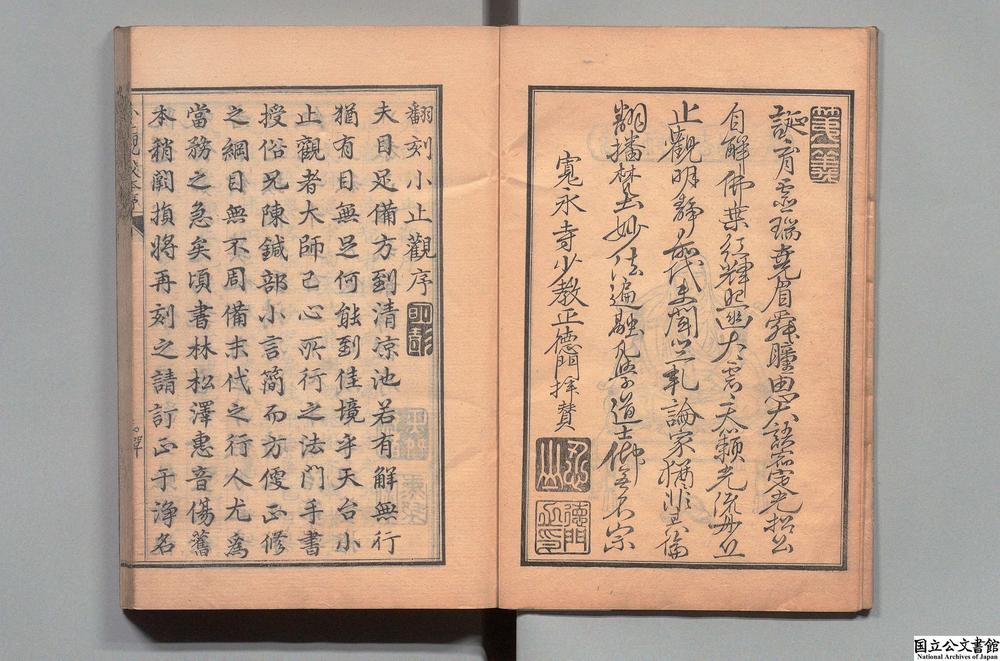 誕育霊瑞堯眉舜瞳大光招公
自解佛葉紅輝照幽太虚天籟光流丹丘
止觀明静前代未聞竺乾論家猶非其倫
翻播妙法遍融凡學道士無不宗
寛永寺少教正德門拜賛
翻刻小止觀序
夫目足備方到清凉池若有解無行
猶有目無足何能到佳境乎天台小
止觀者大師己心所行之法門手書
授俗兄陳鍼部小言簡而方便正修
之綱目無不周備末代之行人尤為
當務之急矣頃書林松澤惠音傷舊
本稍闕損將再刻之請訂正于淨名
国立公文書館
National Archives of Japan